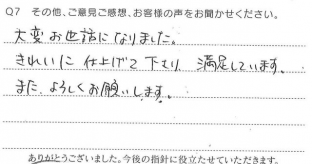 Q7 その他、ご意見ご感想、お客様の声をお聞かせください。
大変お世話になりました。
きれいに仕上げて下さり 満足しています。
また、よろしくお願いします。
ありがとうございました。今後の指針に役立たせていただきます。